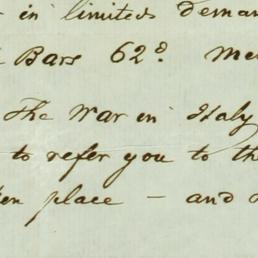 in limited deman
Bars 62? Me
The War in Italy
to refer you to th
en place — and